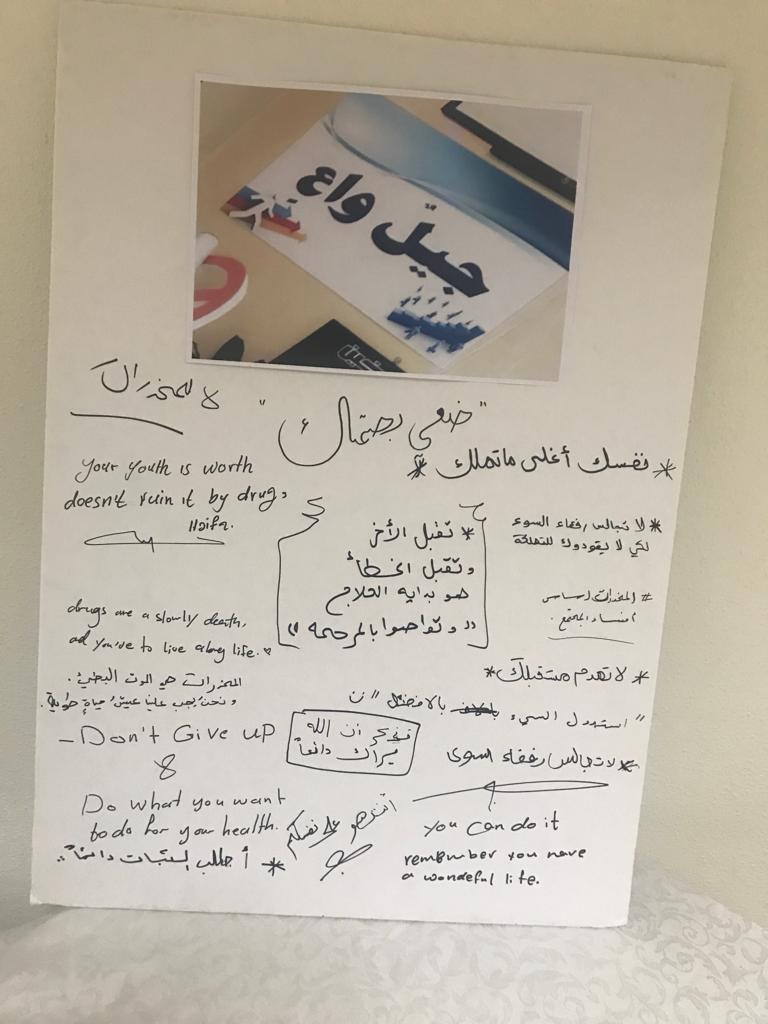 جيل واع
لا للمخدرات
"ضعي بصمتك"
* نفسك أغلى ما تملك *
your youth is worth
doesn't ruin it by drugs
Haifa.
* تقبل الأخر
وتقبل الخطأ
هو بدايه العلاج
"وتواصوا بالمرحمه"
* لا تجالس رفقاء السوء
لكي لا يقودوك للتهلكة
# المخدرات اساس
المجتمع.
drugs are a slowly death,
ad you've to live along life.
المخدرات هي الموت البطيئ.
ونحن يجب علينا عيش حياةٍ طويلة.
* لا تهدم مستقبلك *
"استبدل السيء بالافضل"
- Don't Give up
&
فتذكر ان الله
يراك دائماً
* لا تجالس رفقاء السوء
Do what you want
to do for your health.
* أطلب الثبات دائماً
انتبهو على نفسكم
you can do it
remember you have
a wondeful life.